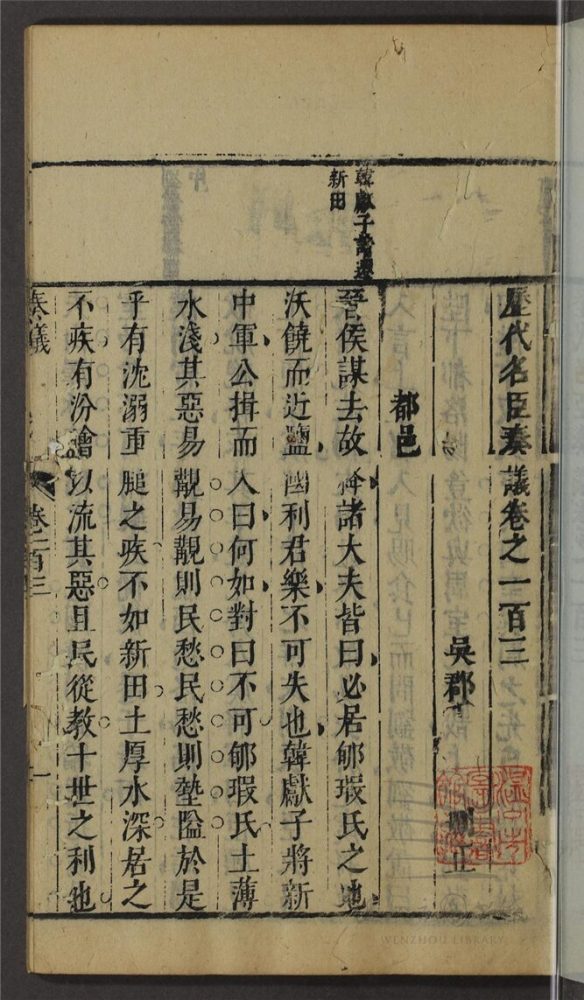 歷代名臣奏議卷之一百三
吳郡
刪正
都邑
韓獻子論遷
新田
晉侯謀去故絳諸大夫皆曰必居郇瑕氏之地
沃饒而近鹽國利君樂不可失也韓獻子將新
中軍公揖而入曰何如對曰不可郇瑕氏土薄
水淺其惡易覯易覯則民愁民愁則墊隘於是
乎有沈溺重膇之疾不如新田土厚水深居之
不疾有汾澮以流其惡且民從教十世之利也
奏議
卷一百三
一
WENZHOU LIBRARY